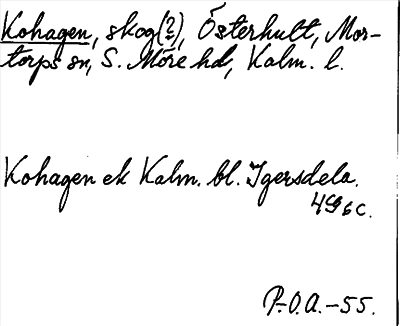 Kohagen, skog(?), Österhult, Mor-
torps sn, S. Möre hd, Kalm. l.
Kohagen ek Kalm. bl. Igersdela.
4G6c.
P.-O.A.-55.